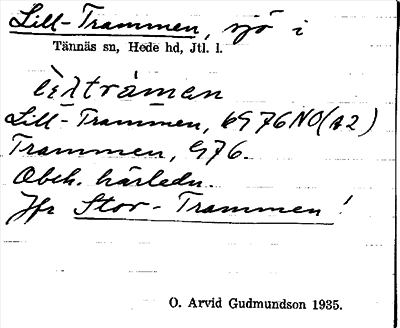 Lill-Trammen, sjö i
Tännäs sn, Hede hd, Jtl. l.
Lill-Trammen, G76NO(a2)
Trammen, G76.
Obek. härledn.
Jfr Stor-Trammen!
O. Arvid Gudmundson 1935.